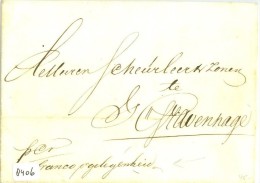 Heeren Scheurleer & Zonen
te
s'Gravenhage
per
franco gelegenheid
8406